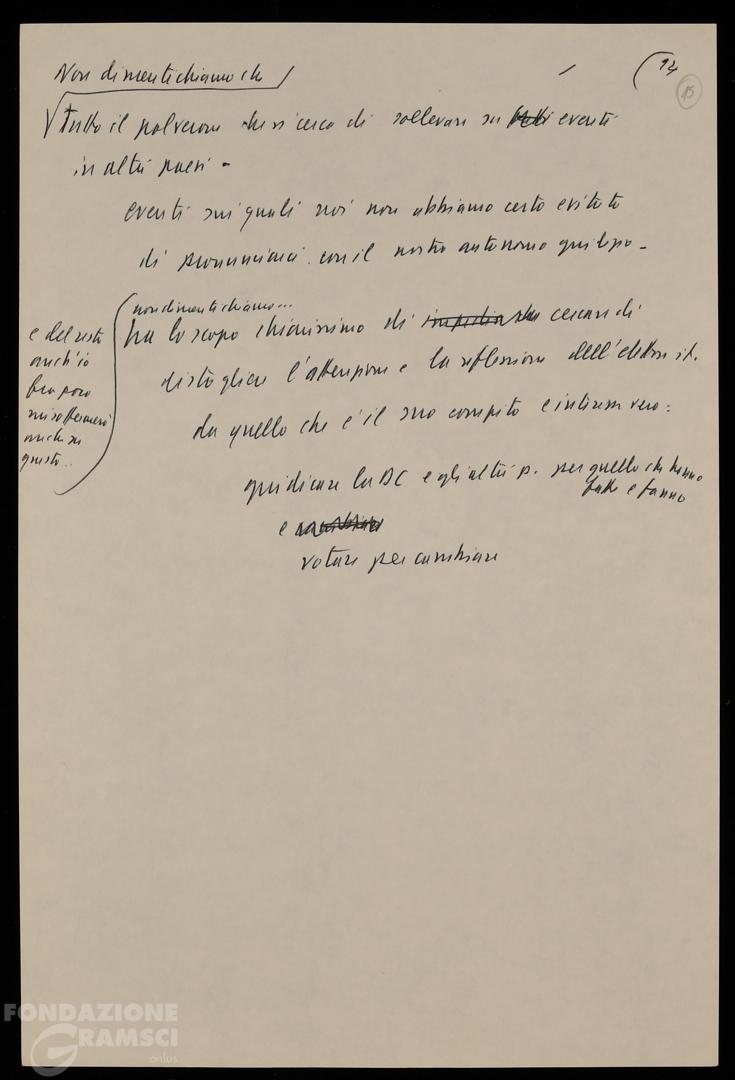 Non dimentichiamo che
14
15
tutto il polverone che si cerca di sollevare su eventi
in altri paesi -
eventi sui quali noi non abbiamo certo evitato
di pronunciarci con il nostro autonomo giudizio -
non dimentichiamo...
ha lo scopo chiarissimo di cercare di
distogliere l'attenzione e la riflessione dell'elettore it.
da quello che è il suo compito e interesse vero:
giudicare la DC e gli altri p. per quello che hanno
fatto e fanno
e
votare per cambiare
e del resto
anch'io
fra poco
mi soffermerò
anche su
questo..
FONDAZIONE
GRAMSCI
onlus